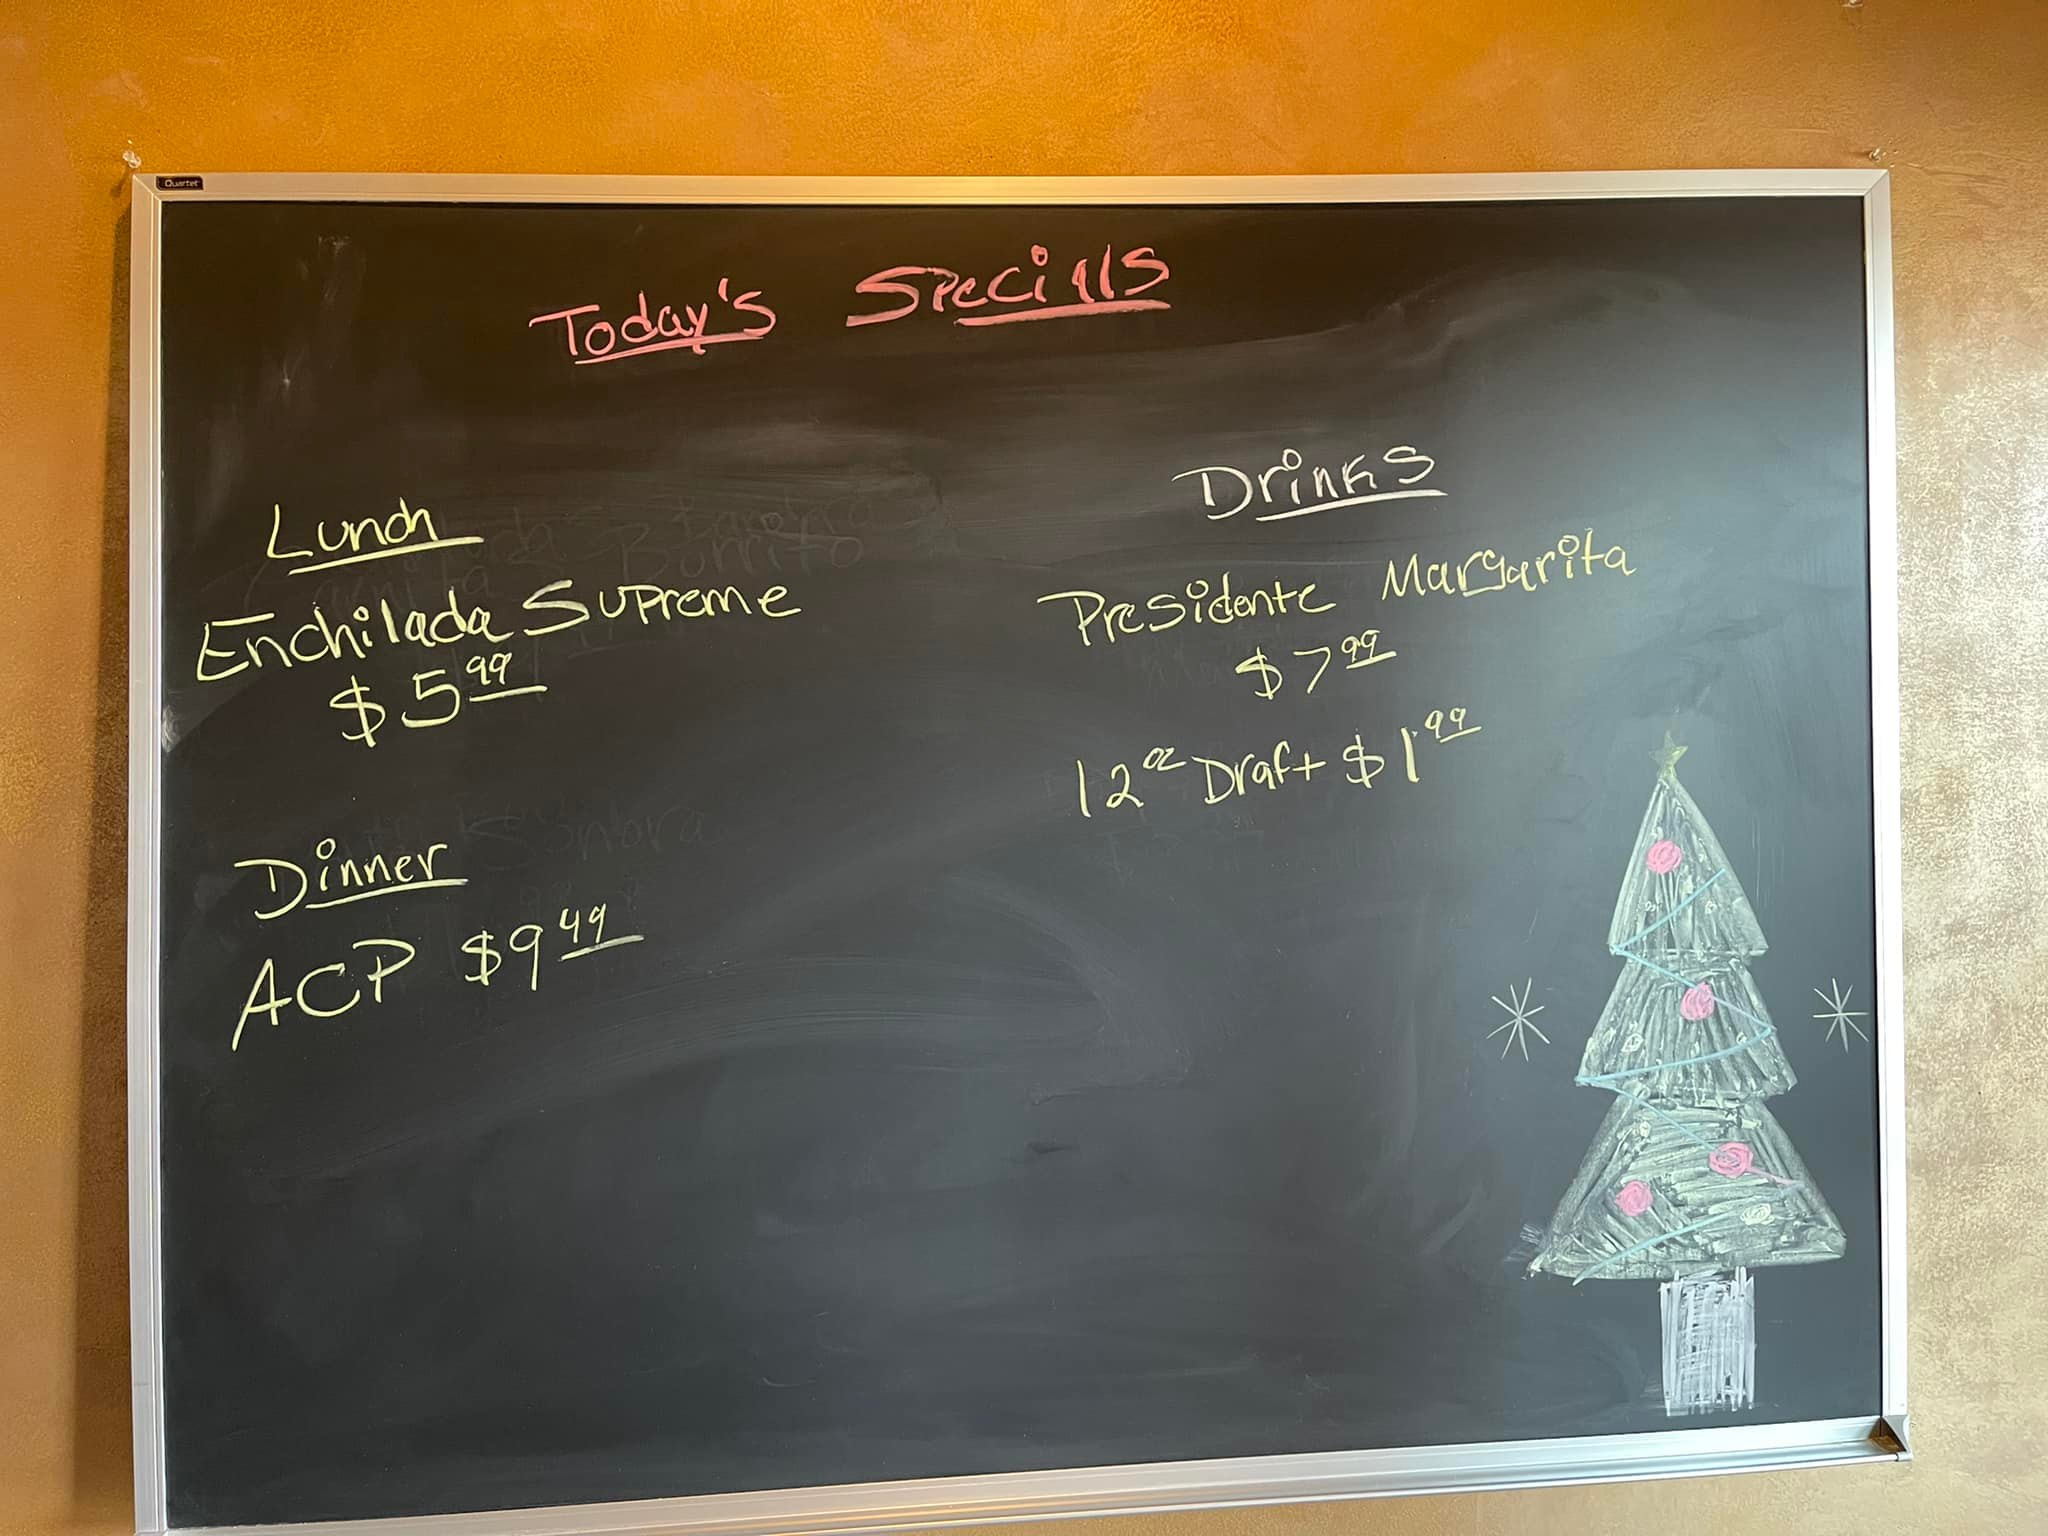 Quartet
Today's Specials
Lunch
Enchilada Supreme
$5.99
Dinner
ACP $9.49
Drinks
Presidente Margarita
$7.99
12 oz Draft $1.99
Borrito
Sonora